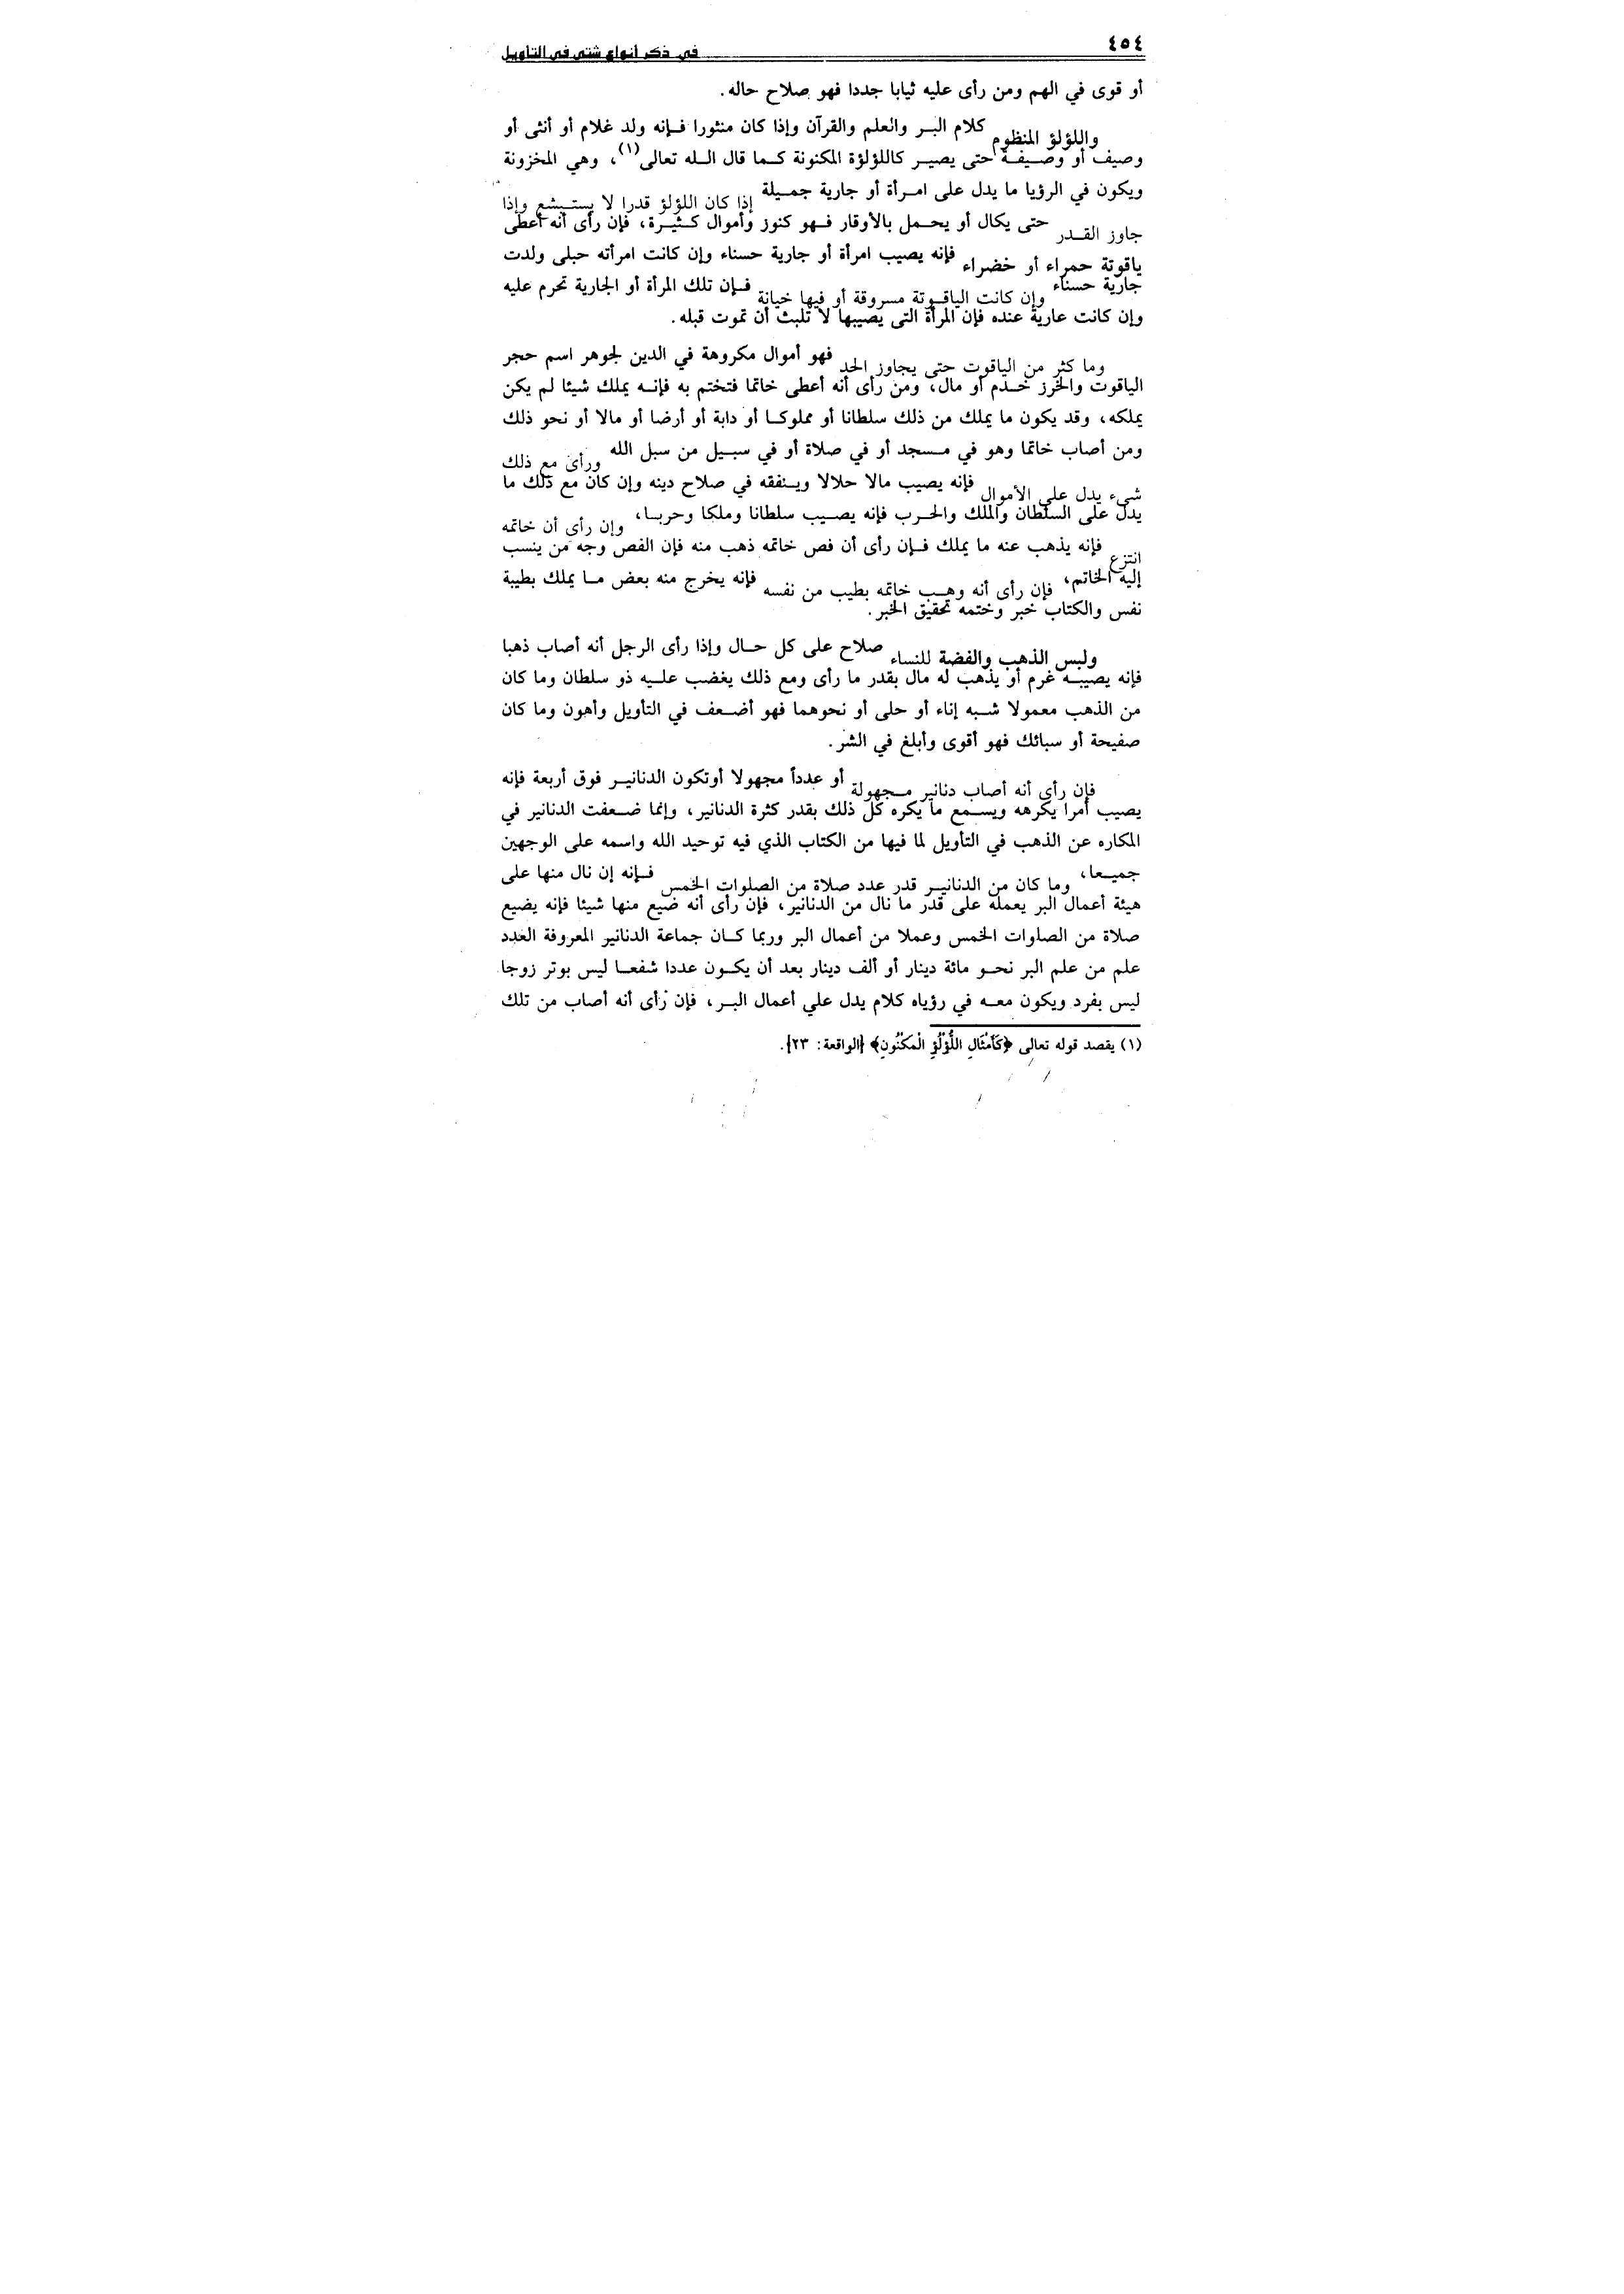 ٤٥٤
في ذكر أنواع شتى في التأويل
أو قوى في الهم ومن رأى عليه ثيابا جددا فهو صلاح حاله.
واللؤلؤ المنظوم كلام البر والعلم والقرآن وإذا كان منثورا فإنه ولد غلام أو أنثى أو
وصيف أو وصيفة حتى يصير كاللؤلؤة المكنونة كما قال الله تعالى(١)، وهي المخزونة
ويكون في الرؤيا ما يدل على امرأة أو جارية جميلة إذا كان اللؤلؤ قدرا لا يستبشع وإذا
جاوز القدر حتى يكال أو يحمل بالأوقار فهو كنوز وأموال كثيرة، فإن رأى أنه أعطى
ياقوتة حمراء أو خضراء فإنه يصيب امرأة أو جارية حسناء وإن كانت امرأته حبلى ولدت
جارية حسناء وإن كانت الياقوتة مسروقة أو فيها خيانة فإن تلك المرأة أو الجارية تحرم عليه
وإن كانت عارية عنده فإن المرأة التى يصيبها لا تلبث أن تموت قبله.
وما كثر من الياقوت حتى يجاوز الحد فهو أموال مكروهة في الدين لجوهر اسم حجر
الياقوت والخرز خدم أو مال، ومن رأى أنه أعطى خاتما فتختم به فإنه يملك شيئا لم يكن
يملكه، وقد يكون ما يملك من ذلك سلطانا أو مملوكا أو دابة أو أرضا أو مالا أو نحو ذلك
ومن أصاب خاتما وهو في مسجد أو في صلاة أو في سبيل من سبل الله ورأى مع ذلك
شىء يدل على الأموال فإنه يصيب مالا حلالا وينفقه في صلاح دينه وإن كان مع ذلك ما
يدل على السلطان والملك والحرب فإنه يصيب سلطانا وملكا وحربا، وإن رأى أن خاتمه
انتزع فإنه يذهب عنه ما يملك فإن رأى أن فص خاتمه ذهب منه فإن الفص وجه من ينسب
إليه الخاتم، فإن رأى أنه وهب خاتمه بطيب من نفسه فإنه يخرج منه بعض ما يملك بطيبة
نفس والكتاب خبر وختمه تحقيق الخبر.
ولبس الذهب والفضة للنساء صلاح على كل حال وإذا رأى الرجل أنه أصاب ذهبا
فإنه يصيبه غرم أو يذهب له مال بقدر ما رأى ومع ذلك يغضب عليه ذو سلطان وما كان
من الذهب معمولا شبه إناء أو حلى أو نحوهما فهو أضعف في التأويل وأهون وما كان
صفيحة أو سبائك فهو أقوى وأبلغ في الشر.
فإن رأى أنه أصاب دنانير مجهولة أو عدداً مجهولا أوتكون الدنانير فوق أربعة فإنه
يصيب أمرا يكرهه ويسمع ما يكره كل ذلك بقدر كثرة الدنانير، وإنما ضعفت الدنانير في
المكاره عن الذهب في التأويل لما فيها من الكتاب الذي فيه توحيد الله واسمه على الوجهين
جميعا، وما كان من الدنانير قدر عدد صلاة من الصلوات الخمس فإنه إن نال منها على
هيئة أعمال البر يعمله على قدر ما نال من الدنانير، فإن رأى أنه ضيع منها شيئا فإنه يضيع
صلاة من الصلوات الخمس وعملا من أعمال البر وربما كان جماعة الدنانير المعروفة العدد
علم من علم البر نحو مائة دينار أو ألف دينار بعد أن يكون عددا شفعا ليس بوتر زوجا
ليس بفرد ويكون معه في رؤياه كلام يدل علي أعمال البر، فإن رأى أنه أصاب من تلك
(١) يقصد قوله تعالى ﴿كَأَمْثَالِ اللُّؤْلُؤِ الْمَكْنُونِ﴾ {الواقعة: ٢٣}.